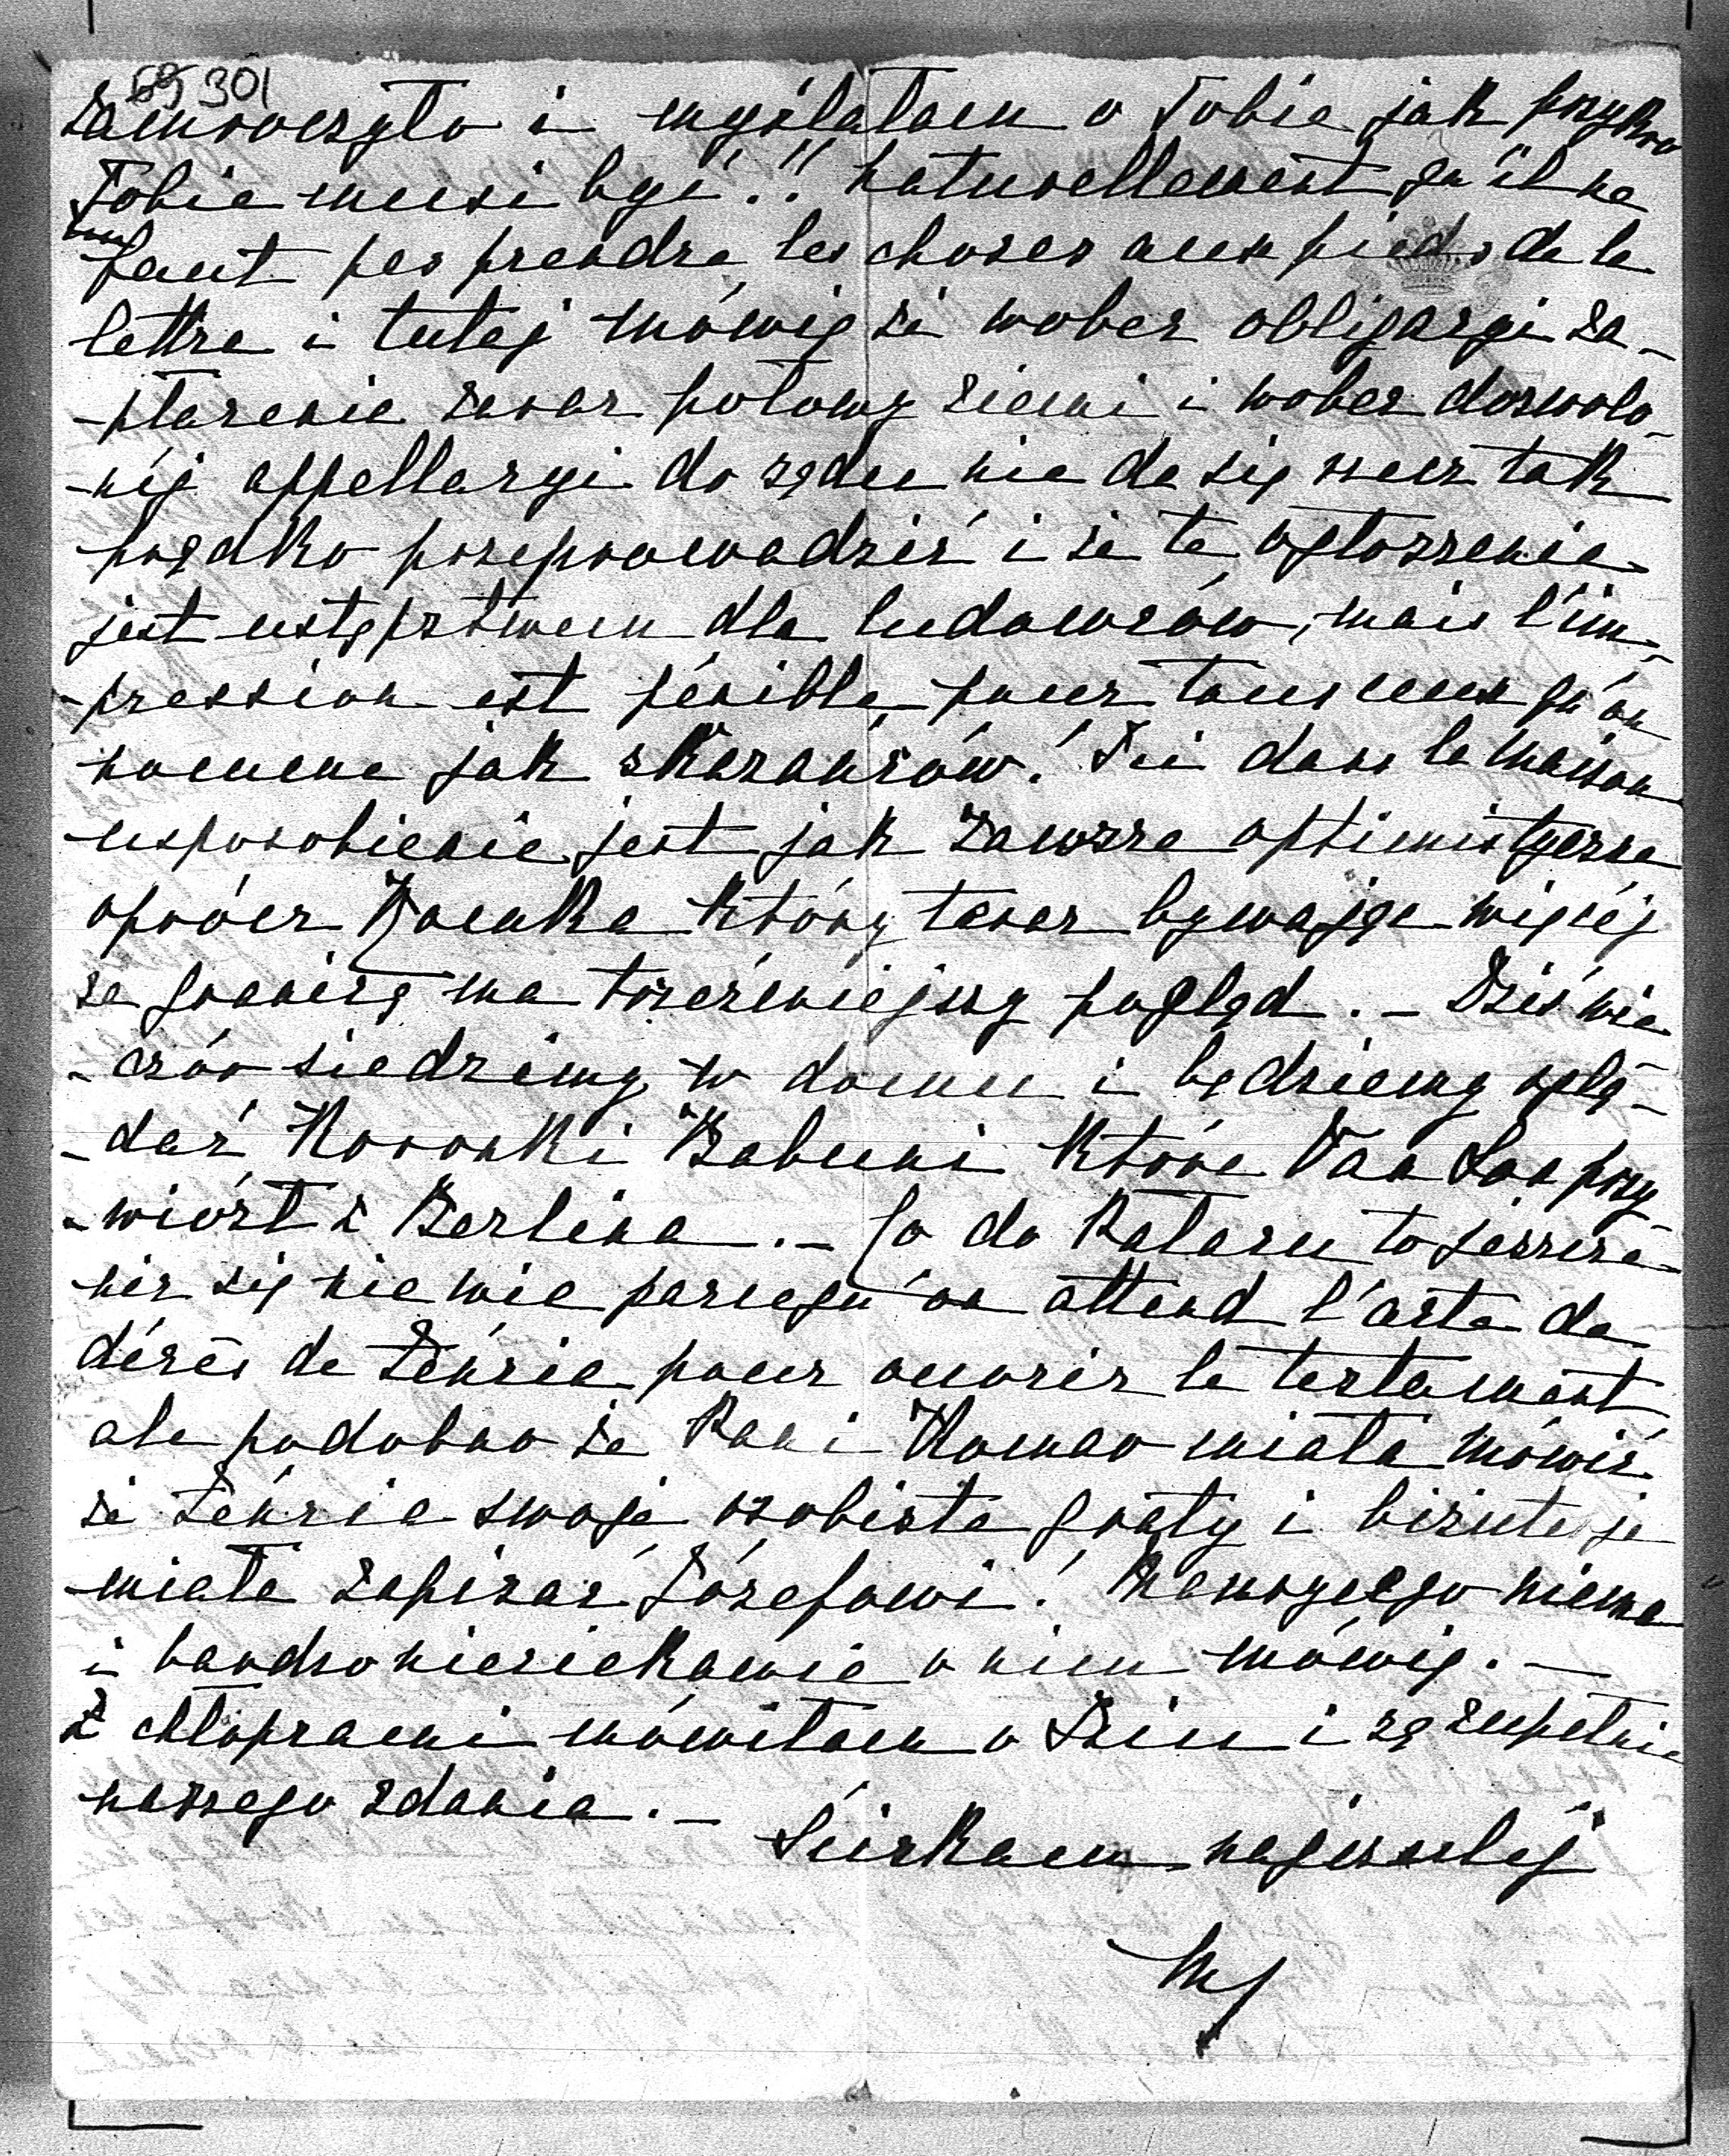 69 301
zamroczyło i myślałam o Tobie jak przykro
Tobie musi być!! Naturellement qu'il ne
faut pas prendre les choses aux pieds de la
lettre i tutaj mówią że wobec obligacyi za-
-płacenia zaraz połowy ziemi i wobec dozwolo-
-nej appellacyi do sądu nie da się rzecz tak
prędko przeprowadzić i że te ogłoszenia
jest ustępstwem dla ludowców, mais l'im-
-pression est pénible pour tous ceux qu'on
nomme jak skazańców! Tu dans la maison
usposobienie jest jak zawsze optimistyczne
oprócz Franka który teraz bywając więcej
za granicą ma trzeźwiejszy pogląd. – Dziś wie-
-czór siedzimy w domu i będziemy oglą-
-dać Koronki Babuni które Van Lon przy-
-wiózł z Berlina. – Co do Kataru to jeszcze
nic się nie wie parcequ'on attend l'acte de
décès de Żéńcia pour ouvrir le testament
ale podobno że Pani Homao miała mówić
że Żéńcia swoje osobiste graty i bizuterje
miała zapisać Józefowi! Maurycego niema
i bardzo nieciekawie o nim mówią. –
Z chłopcami mówiłam o Tziu i są zupełnie
naszego zdania. –
Ściskam najczulej
M